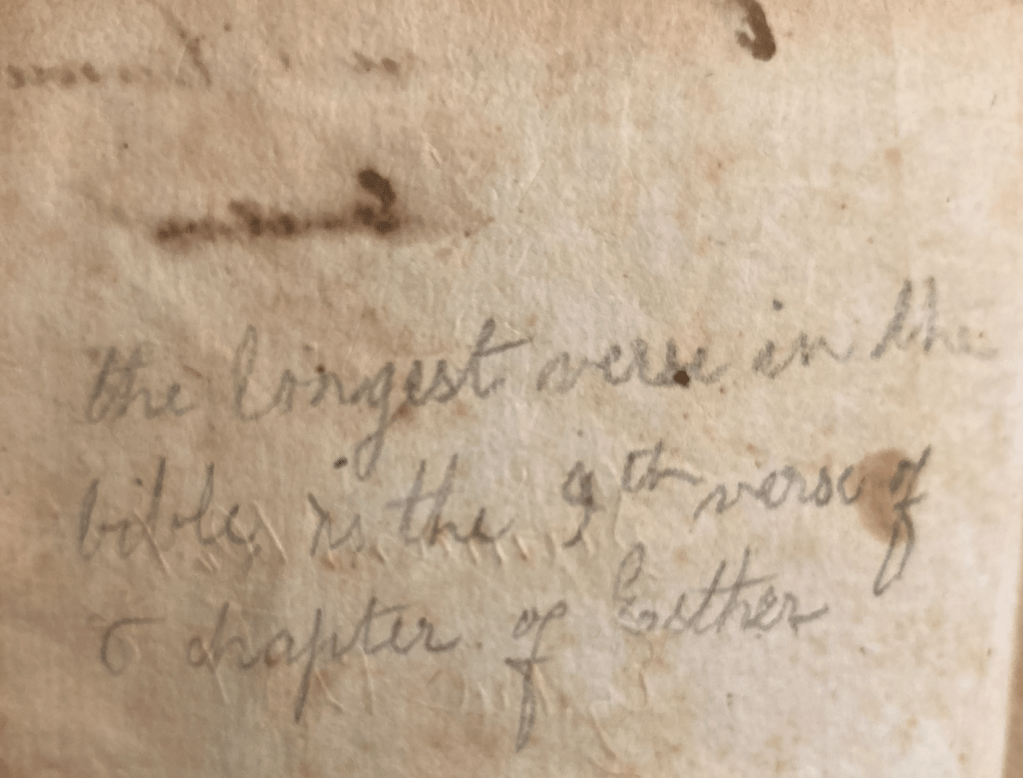 the longest verse in the
bible is the 9th verse of
chapter of Esther